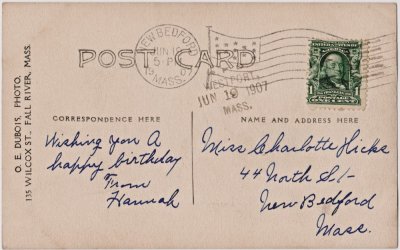 NEW BEDFORD
JUN 19
5-P
MASS.
POST CARD
WESTPORT,
JUN 19 1907
MASS.
ONE CENT
O. E. DUBOIS, PHOTO.
135 WILCOX ST., FALL RIVER, MASS.
CORRESPONDENCE HERE
Wishing you A
happy birthday
From
Hannah
NAME AND ADDRESS HERE
Miss Charlotte Hicks
44 North St-
New Bedford
Mass.